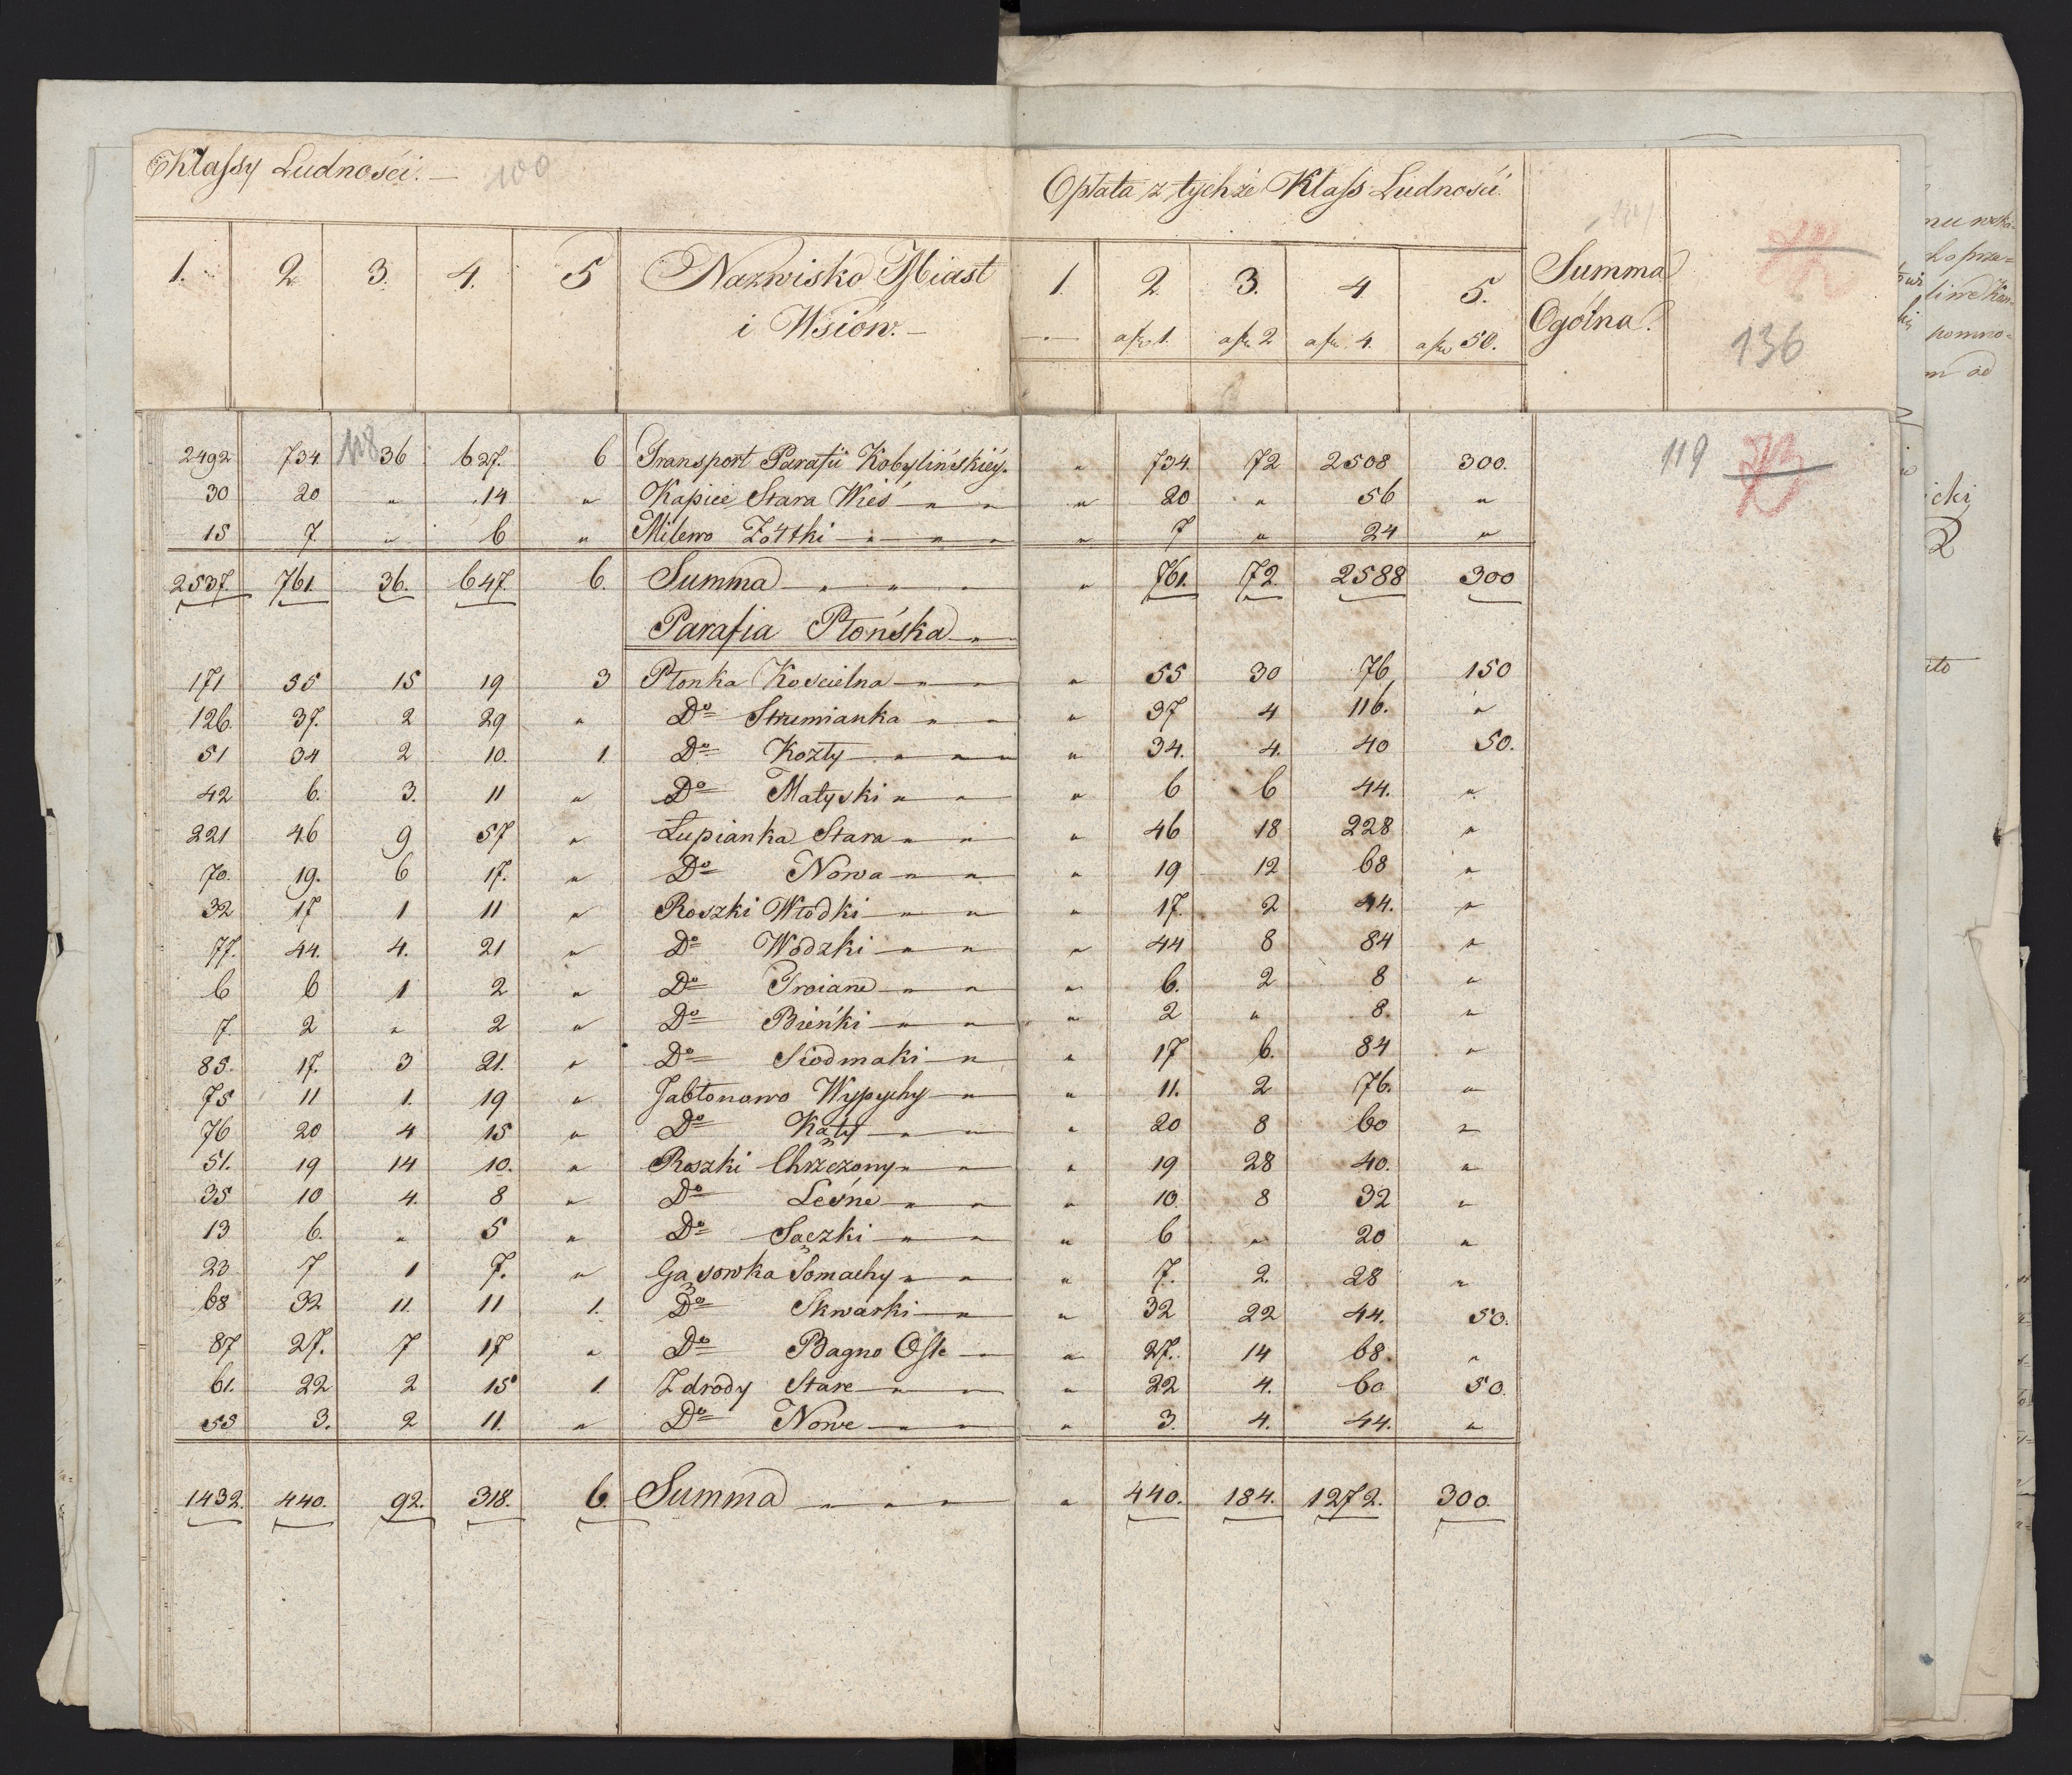 Klassy Ludności. — 100 Opłata z tychże Klass Ludności.
1. 2 3. 4. 5 Nazwisko Miast i Wsiow. — 1. 2. 3. 4 5. Summa Ogólna.
a fl. 1. a fl. 2 a fl. 4. a fl. 50.
136
118
119
2492 734 36 627. 6 Transport Parafii Kobylińskiéy. " 734. 72 2508 300.
30 20 " 14 " Kapice Stara Wieś " " " 20 " 56 "
15 7. " 6 " Milewo Zółtki " " " " 7 " 24 "
2537. 761. 36. 647. 6. Summa " " " " 761. 72. 2588 300
Parafia Płońska "
171 55 15 19 3 Płonka Kościelna " " " 55 30 76 150
126. 37. 2 29 " Do Strumianka " " " 37 4 116. "
51 34 2 10. 1. Do Kozły " " " " 34. 4. 40 50.
42 6. 3. 11 " Do Matyski " " " 6 6 44. "
221 46 9 57 " Łupianka Stara " " " 46 18 228 "
70. 19. 6 17. " Do Nowa " " " 19 12 68 "
32 17 1 11 " Roszki Włodki " " " 17. 2 44. "
77. 44. 4. 21 " Do Wodzki " " " 44 8 84 "
6 6 1 2 " Do Troiane " " " 6. 2 8 "
7. 2 " 2 " Do Bieńki " " " 2 " 8. "
85. 17. 3 21. " Do Siodmaki " " 17 6. 84 "
75 11 1. 19 " Jabłonowo Wypychy " " 11. 2 76. "
76 20 4 15 " Do Kąty " " " 20 8 60 "
51. 19 14 10. " Roszki Chrzczony " " " 19 28 40. "
35 10 4. 8 " Do Leśne " " " 10. 8 32 "
13 6. " 5 " Do Sączki " " " 6 " 20 "
23 7 1 7. " Gąsowka Somachy " " " 7. 2. 28 "
68 32 11. 11 1. Do Skwarki " " 32 22 44. 50.
87 27. 7 17 " Do Bagno Osse " " 27. 14 68. "
61. 22 2 15 1. Zdrody Stare " " " 22 4. 60 50.
55 3. 2 11. " Do Nowe " " " 3. 4. 44. "
1432. 440. 92. 318. 6. Summa " " " " 440. 184. 1272. 300.